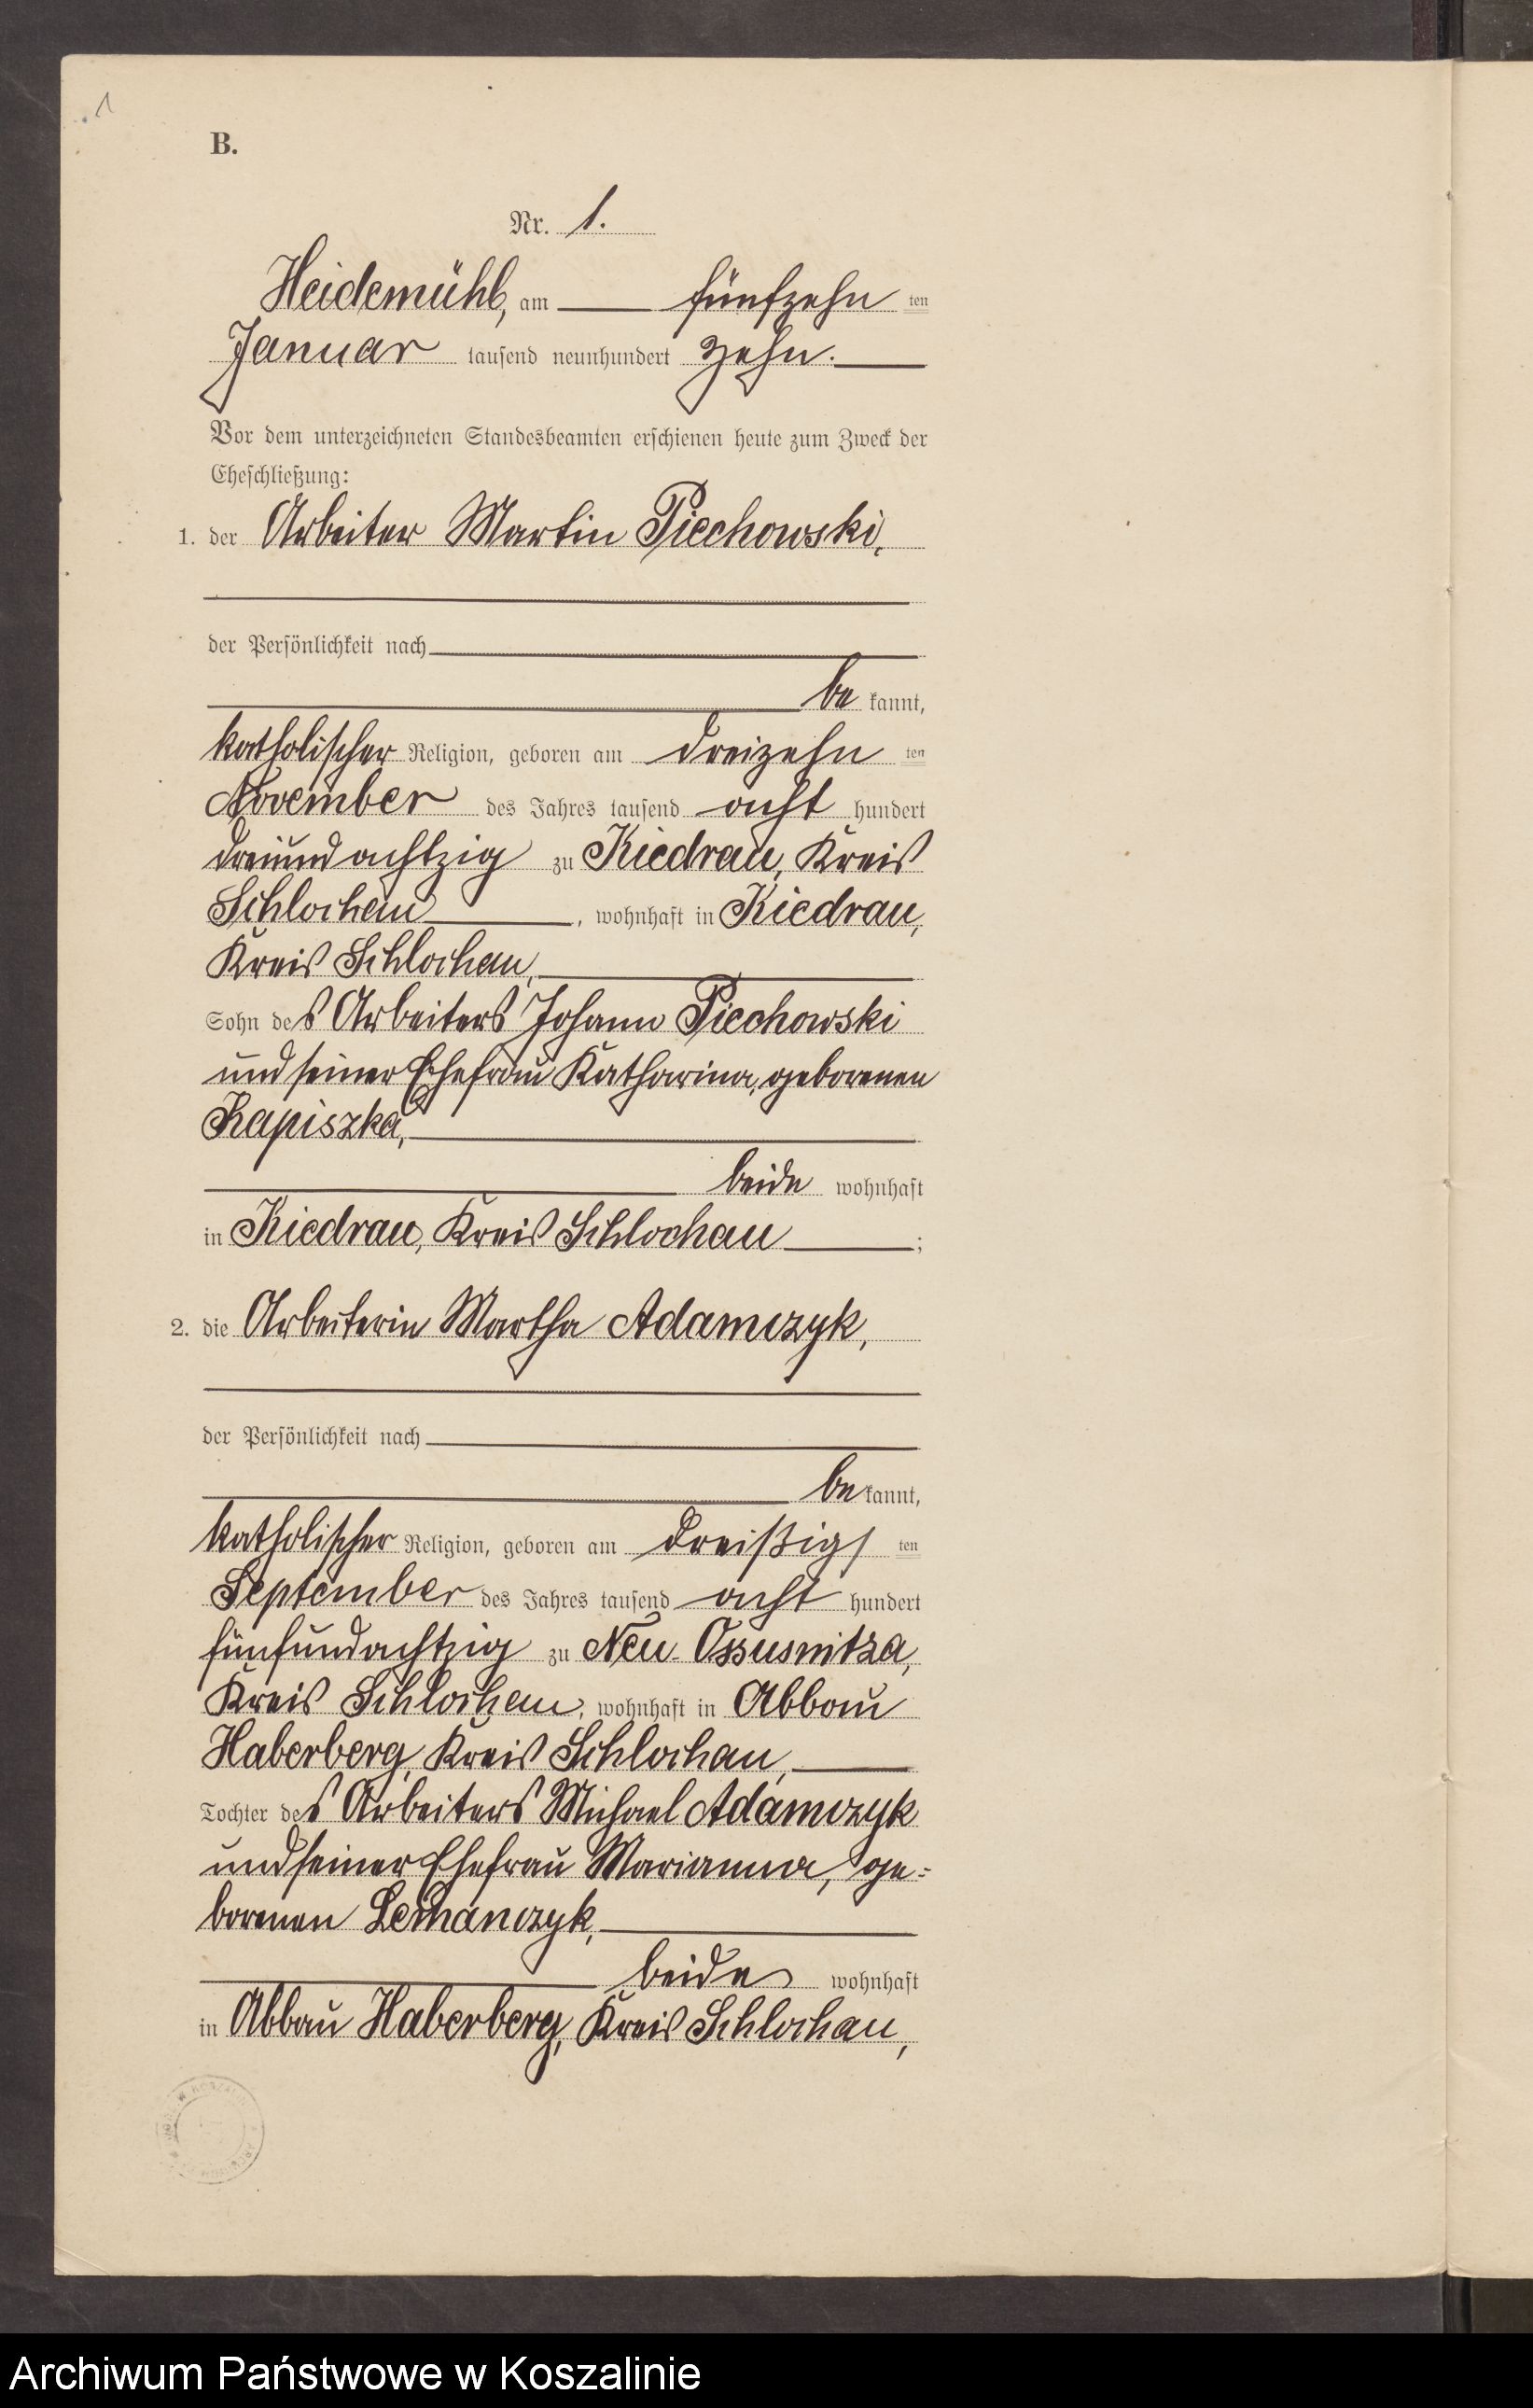 1
B.
Nr. 1.
Heidemühl, am fünfzehn ten
Januar tausend neunhundert zehn.
Vor dem unterzeichneten Standesbeamten erschienen heute zum Zweck der
Eheschließung:
1. der Arbeiter Martin Piechowski,
der Persönlichkeit nach
be kannt,
katholischer Religion, geboren am dreizehn ten
November des Jahres tausend acht hundert
dreiundachtzig zu Kiedrau, Kreis
Schlochau, wohnhaft in Kiedrau,
Kreis Schlochau,
Sohn des Arbeiters Johann Piechowski
und seiner Ehefrau Katharina, geborenen
Kapiszka,
beide wohnhaft
in Kiedrau, Kreis Schlochau;
2. die Arbeiterin Martha Adamczyk,
der Persönlichkeit nach
be kannt,
katholischer Religion, geboren am dreißigs ten
September des Jahres tausend acht hundert
fünfundachtzig zu Neu-Ossusnitza,
Kreis Schlochau, wohnhaft in Abbau
Haberberg, Kreis Schlochau,
Tochter des Arbeiters Michael Adamczyk
und seiner Ehefrau Marianna, ge-
borenen Lemanczyk,
beide wohnhaft
in Abbau Haberberg, Kreis Schlochau,
Archiwum Państwowe w Koszalinie